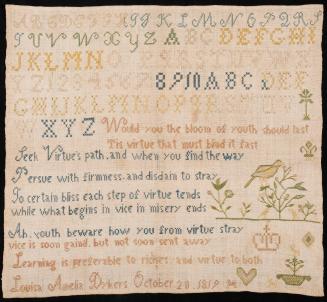 A B C D E F G H I J K L M N O P Q R S
T U V W X Y Z A B C D E F G H I
J K L M N O
Z 1 2 3 4 5 6 7 8 9 10 A B C D E F
G H I J K L M N O P Q R S
W X Y Z Would you the bloom of youth should last
Tis virtue that must bind it fast
Seek Virtue's path, and when you find the way
Persue with firmness, and disdain to stray
To certain bliss each step of virtue tends
while what begins in vice in misery ends
Ah, youth beware how you from virtue stray
vice is soon gaind, but not soon sent away
Learning is preferable to riches; and virtue to both
Louisa Amelia October 20 1819